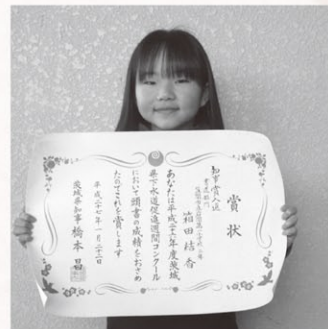 賞状
知事賞入選
箱田結香
あなたは平成二十六年度茨城
県下水道促進週間コンクール
において頭書の成績をおさめ
たのでこれを賞します
平成二十七年一月二十二日
茨城県知事 橋本昌